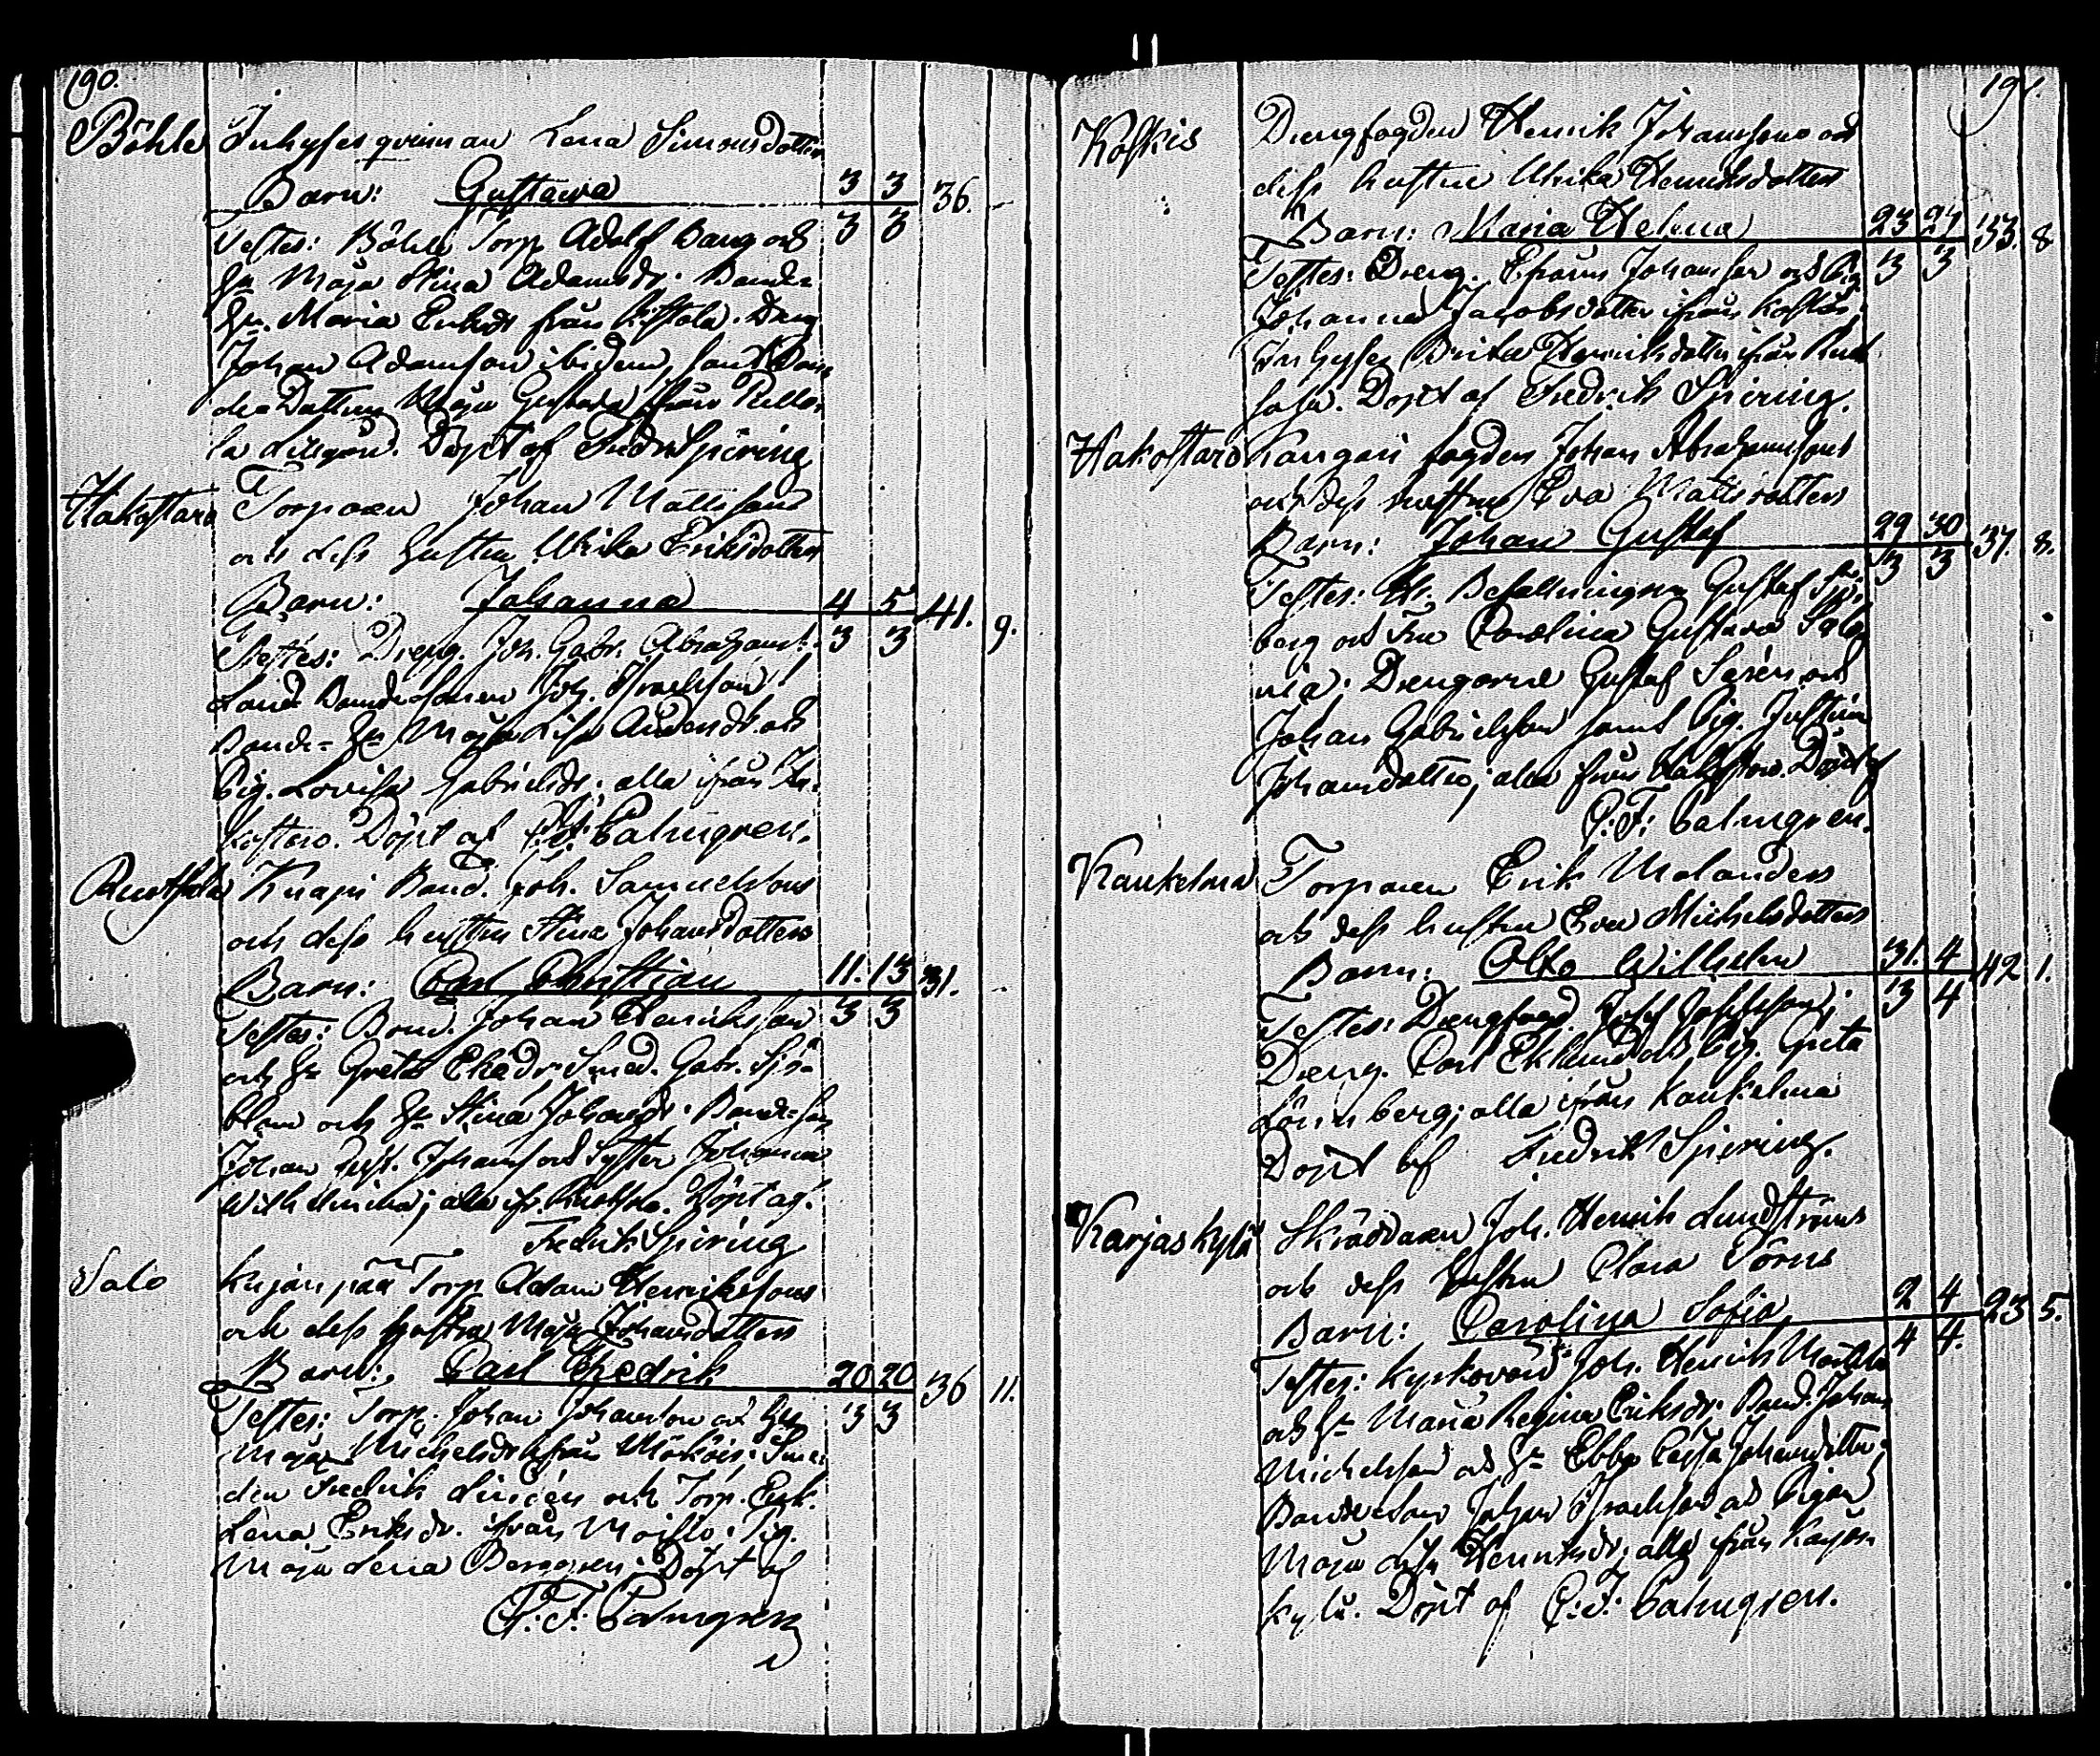 190.
Böhle Inhyses qvinnan Lena Simonsdotter
Barn: Gustava 3 3 36.
Testes: Böhle Torp. Adolf Bang och 3 3
Hu Maja Stina Adamsdr. Bonde-
Hu. Maria Eriksdr från Dreng
Johan Adamson ibidem, samt Bon-
de Dottren Maja Gustava från Pello-
la Lillgård. Döpt af Fredr Spiering
Hakostaro Torparen Johan Mattssons
och dess Hustru Ulrika Eriksdotters
Barn: Johanna 4 5 41. 9.
Testes: Dreng. Joh. Gabr. Abrahams. 3 3
Land Bondesonen Joh. Israelsson
Bonde-Hu Maja Lisa och
Pig. Lovisa Gabrielsdr; alla ifrån Ha-
kostaro. Döpt af C. F. Palmgren.
Ruotsala Knapi Bond. Joh. Samuelssons
och dess hustru Stina Johansdotters
Barn: Carl Christian 11. 13 31.
Testes: Bond. Johan Henriksson 3 3
och Hu Greta Smed. Gabr. Sjö-
blom och Hu Stina Johansdr. Bonde-
Johan Johans och Syster Johanna
Wilhelmina; alla ifr. Ruotsala. Döpt af
Fredrik Spiering
Salo Torp Adam Henrikssons
och dess hustru Maja Johansdotters
Barn: Carl Fredrik 20 20 36 11.
Testes: Torp. Johan Johansson och Hu 3 3
Maja Michelsdr ifrån Sme-
den Fredrik Lindén och Torp. Enk.
Lena Eriksdr. ifrån Moisio. Pig.
Maja Lena Berggren. Döpt af
C. F. Palmgren
191.
Koskis Drengfogden Henrik Johanssons och
dess hustru Ulrika Henriksdotters
Barn: Maria Helena 23 24 33. 8
Testes: Dreng. Efraim Johansson och Pig 3 3
Johanna Jacobsdotter ifrån Koskis.
Inhyses Brita Henriksdotter ifrån Ruot-
sala. Döpt af Fredrik Spiering.
Hakostaro Kangari fogden Johan Abrahamssons
och dess hustru Eva Mattsdotters
Barn: Johan Gustaf 29 30 37. 8.
Testes: Hr. Befallningsm Gustaf 3 3
berg och Fru Carolina Gustava
nia. Drengarne Gustaf Serén och
Johan Gabrielsson samt Pig. Justina
Johansdotter; alla från Hakostaro. Döpt af
C. F. Palmgren.
Kaukelma Torparen Erik Melanders
och dess hustru Eva Michelsdotters
Barn: Otto Wilhelm 31. 4 42. 1.
Testes: Drengfogd. Josef Josefsson; 3 4
Dreng. Carl Eklund och Pig. Greta
Lönnberg; alla ifrån Kaukelma
Döpt af Fredrik Spiering.
Karjaskylä Skräddaren Joh. Henrik Lundströms
och dess Hustru Clara Törns
Barn: Carolina Sofia 2 4 23 5.
Testes: Kyrkovärd Joh. Henrik 4 4.
och Hu Maria Regina Eriksdr. Bond. Johan
Michelsson och Hu Ebba Cajsa Johansdotter;
Bondeson Johan Israelsson och Pigan
Maja Lisa Henriksdr; alla ifrån Karjas-
kylä. Döpt af C. F. Palmgren.